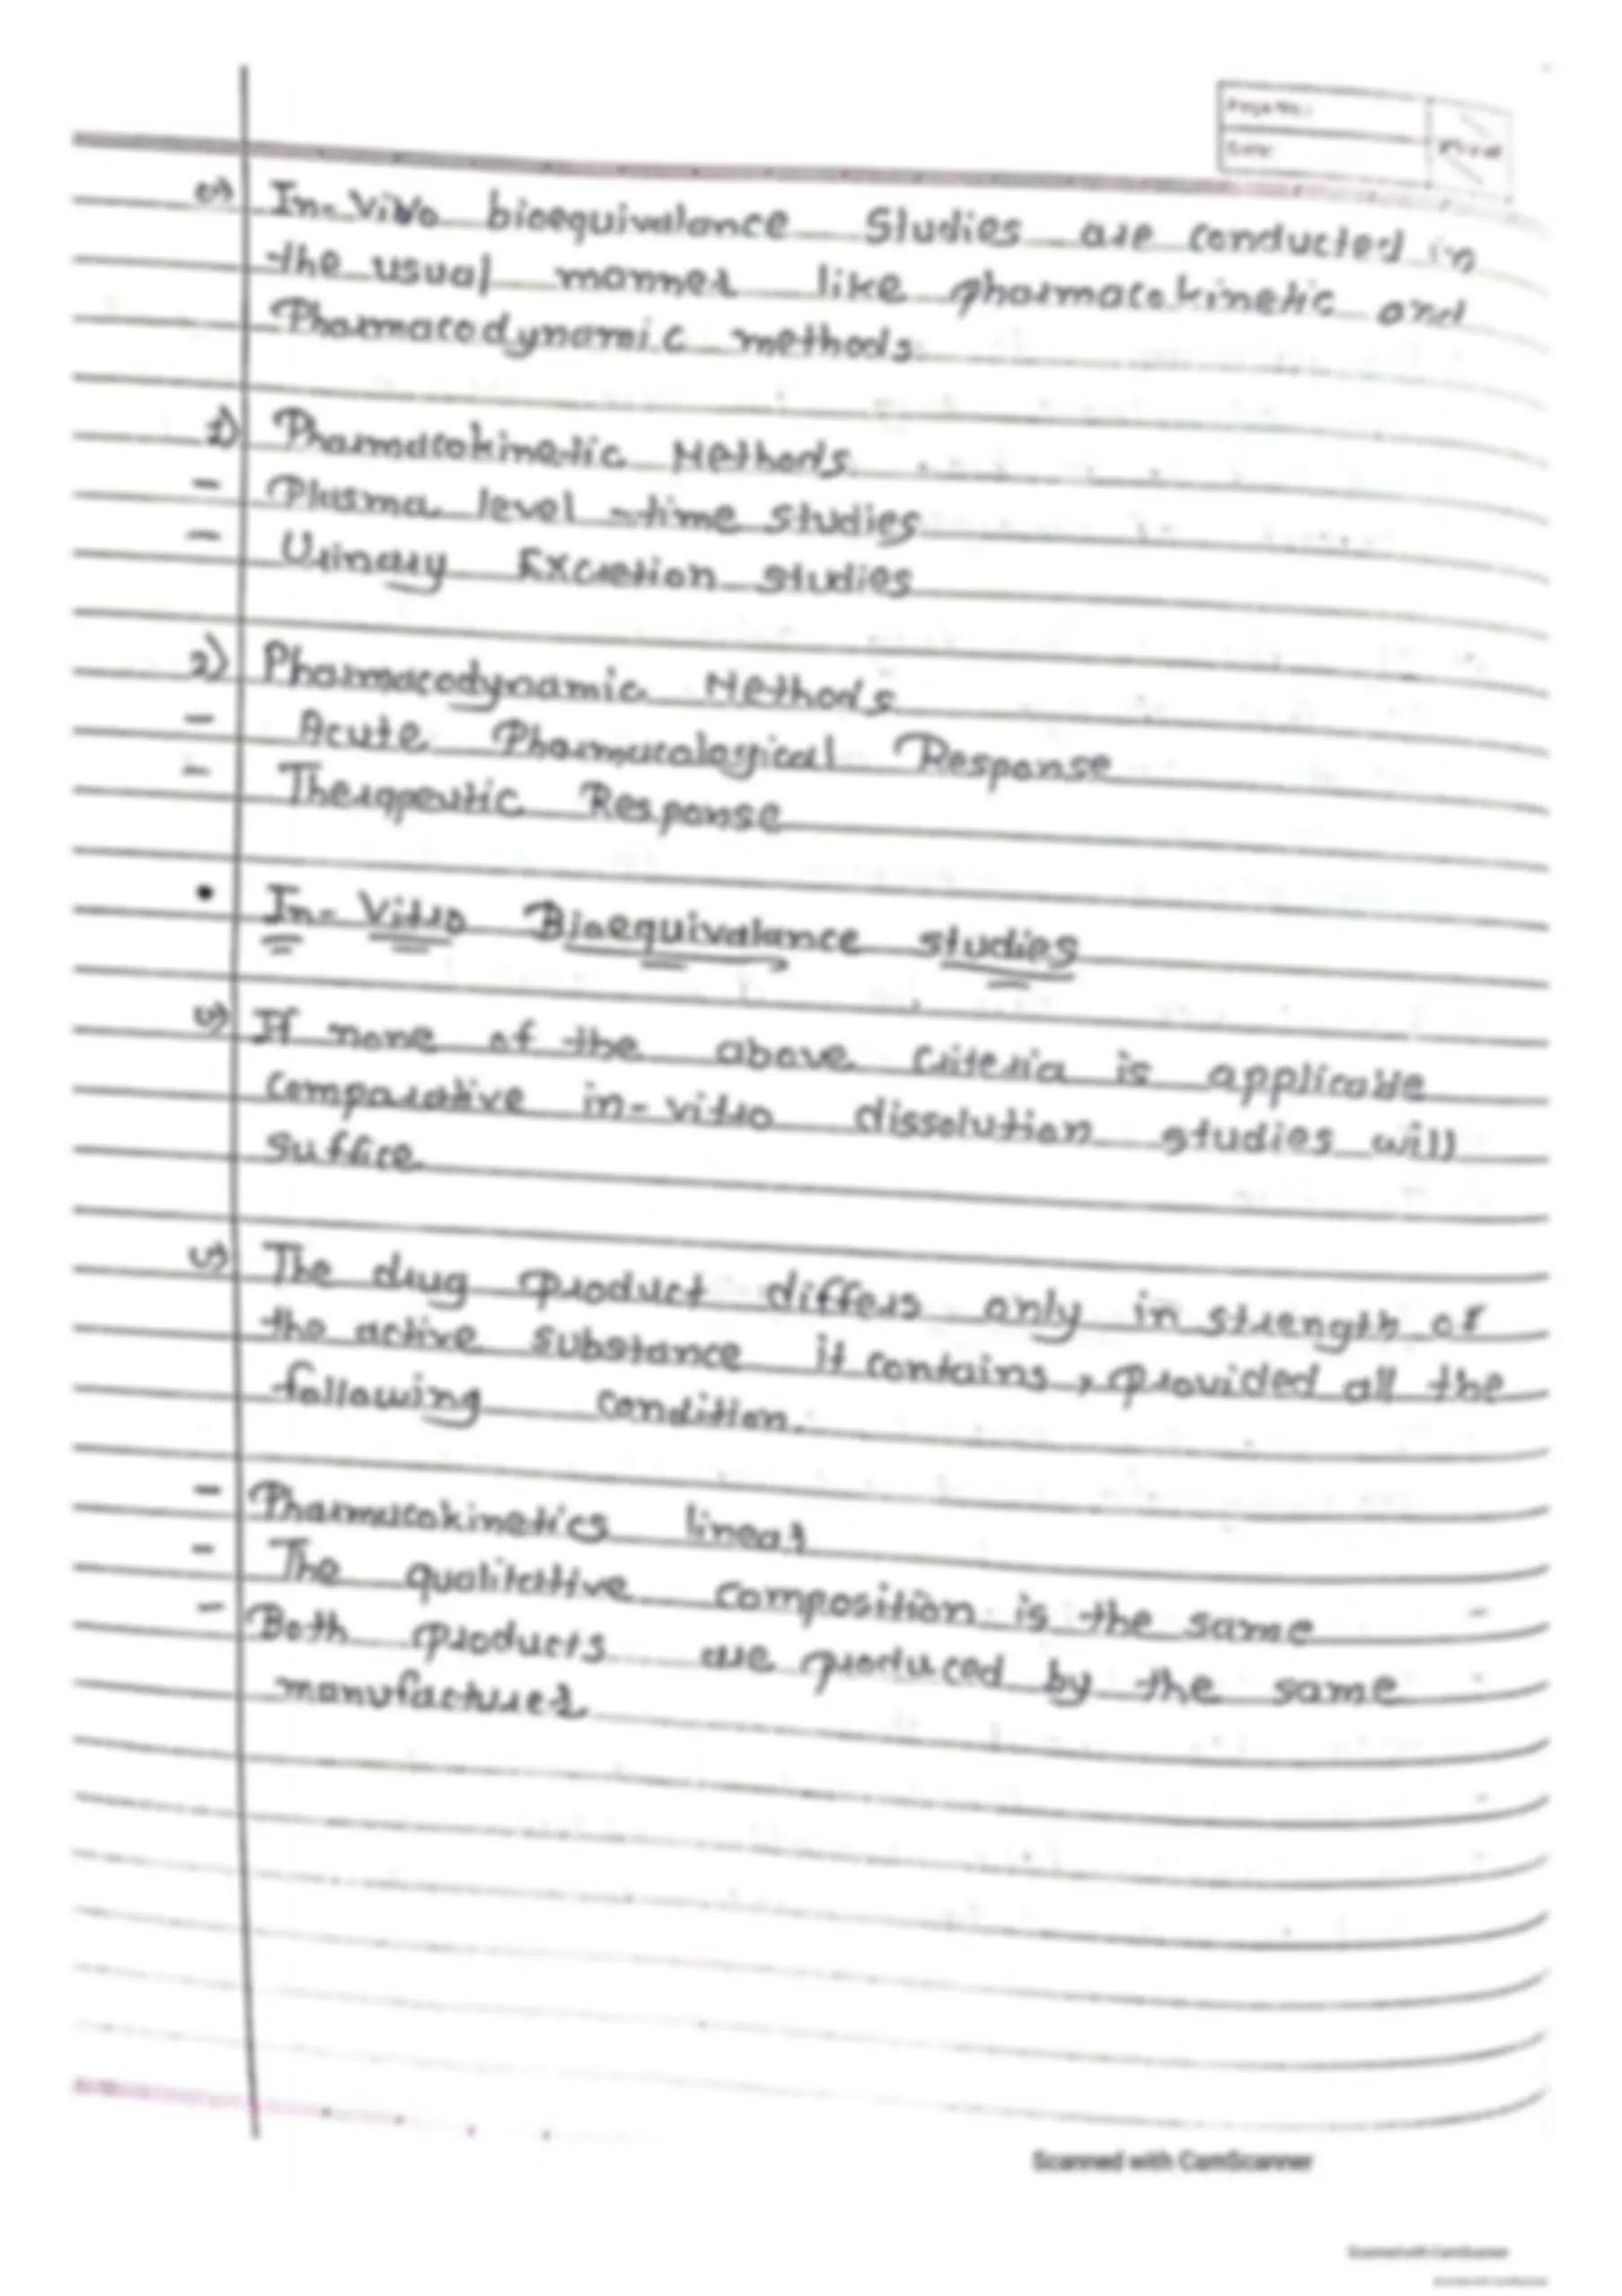 Page No.:
Date:
In-Vivo bioequivalance Studies are conducted in
the usual manner like pharmacokinetic and
Pharmacodynamic methods.
1) Pharmacokinetic Methods
- Plasma level -time studies
- Urinary Excretion studies
2) Pharmacodynamic Methods
- Acute Pharmacological Response
- Therapeutic Response
• In-Vitro Bioequivalance studies
If none of the above criteria is applicable
comparative in-vitro dissolution studies will
suffice
The drug product differs only in strength of
the active substance it contains, provided all the
following condition.
- Pharmacokinetics linear
- The qualitative composition is the same
- Both products are produced by the same
manufacturer
Scanned with CamScanner
Scanned with CamScanner
Scanned with CamScanner